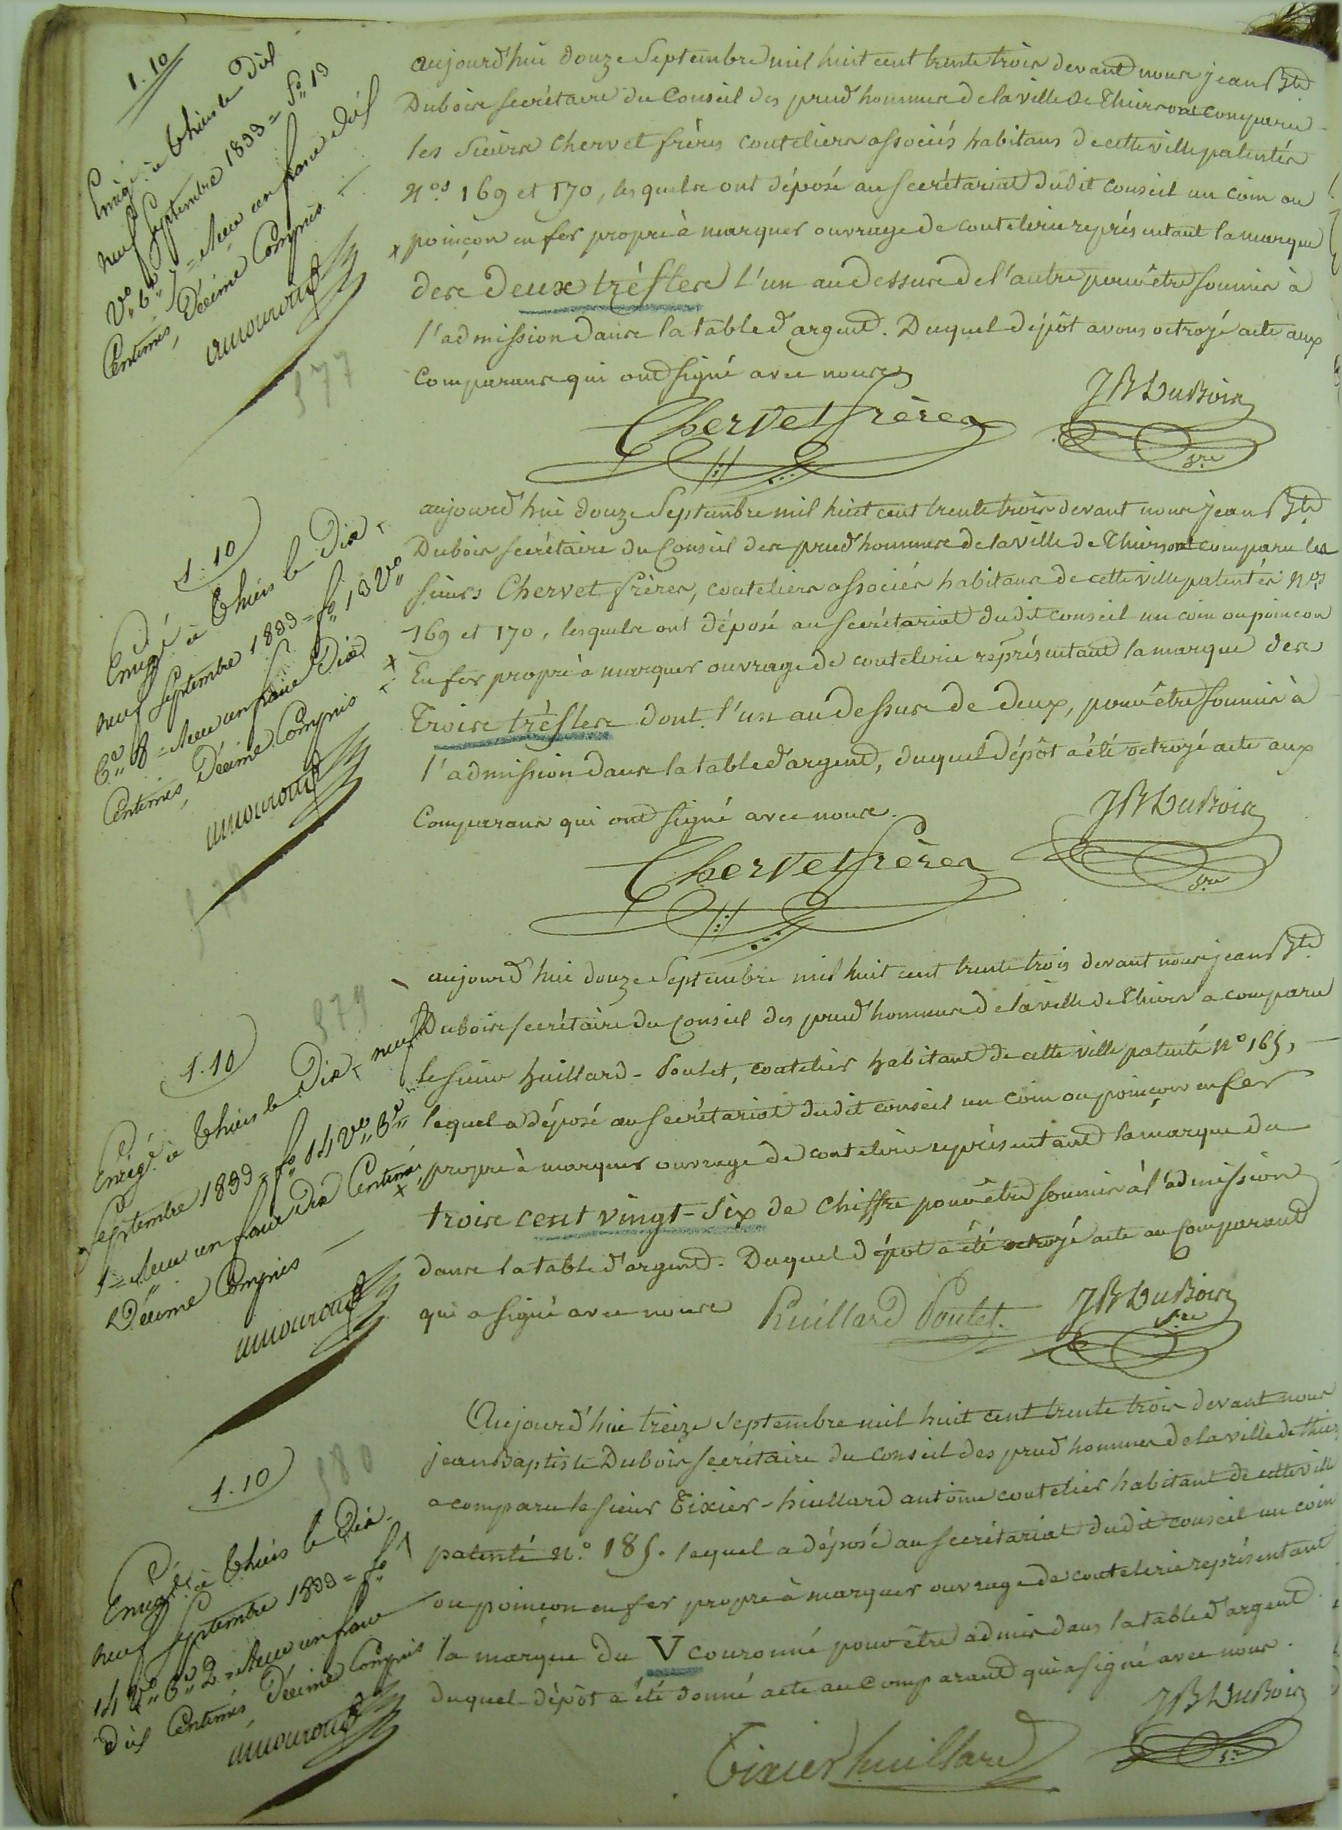 1.10
Enregé à Thiers le Dix
neuf Septembre 1833 = fo 13
Vo C. 7 = Reçu un franc dix
Centimes, Décime Compris
amouroux
577
aujourd'hui douze Septembre mil huit cent trente trois devant nous jean Bte
Dubois secrétaire du Conseil des prud'hommes de la ville de Thiers ont comparu
les Sieurs Chervet frères couteliers associés habitans de cette ville patentés
Nos 169 et 170, lesquels ont déposé au secrétariat dudit conseil un coin ou
x poinçon en fer propre à marquer ouvrage de coutelerie représentant la marque
des deux trèfles l'un au dessus de l'autre pour être soumis à
l'admission dans la table d'argent. Duquel dépôt avons octroyé acte aux
Comparans qui ont signé avec nous
Chervet frères
JB Dubois
sre
1.10
Enregé à Thiers le Dix
neuf Septembre 1833 = fo 13 Vo
C. 8 = Reçu un franc Dix
Centimes, Décime Compris
amouroux
578
aujourd'hui douze Septembre mil huit cent trente trois devant nous jean Bte
Dubois secrétaire du Conseil des prud'hommes de la ville de Thiers ont comparu les
sieurs Chervet frères, couteliers associés habitans de cette ville patentés Nos
169 et 170, lesquels ont déposé au secrétariat dudit conseil un coin ou poinçon
x En fer propre à marquer ouvrage de coutelerie représentant la marque des
Trois trèfles dont l'un au dessus de deux, pour être soumis à
l'admission dans la table d'argent, duquel dépôt a été octroyé acte aux
Comparans qui ont signé avec nous.
Chervet frères
JB Dubois
sre
579
1.10
Enregé à Thiers le Dix neuf
Septembre 1833 = fo 14 Vo C.
1 = Reçu un franc Dix Centimes,
Décime Compris
amouroux
aujourd'hui douze Septembre mil huit cent trente trois devant nous jean Bte
Dubois secrétaire du Conseil des prud'hommes de la ville de Thiers a comparu
le sieur huillard-Poulet, coutelier habitant de cette ville patenté No 165,
lequel a déposé au secrétariat dudit conseil un coin ou poinçon en fer
x propre à marquer ouvrage de coutelerie représentant la marque du
trois cent vingt-six de Chiffre pour être soumis à l'admission
dans la table d'argent. Duquel dépôt a été octroyé acte au Comparant
qui a signé avec nous
huillard Poulet.
JB Dubois
sre
1.10
580
Enregé à Thiers le Dix
neuf Septembre 1833 = fo
14 Vo C. 2 = Reçu un franc
dix Centimes, Décime Compris
amouroux
Aujourd'hui treize septembre mil huit cent trente trois devant nous
jean Baptiste Dubois secrétaire du conseil des prud'hommes de la ville de Thiers
a comparu le sieur Tixier-huillard antoine coutelier habitant de cette ville
patenté No 185. lequel a déposé au secrétariat dudit conseil un coin
ou poinçon en fer propre à marquer ouvrage de coutelerie représentant
la marque du V couronné pour être admis dans la table d'argent.
duquel dépôt a été donné acte au Comparant qui a signé avec nous.
Tixier huillard
JB Dubois
sre